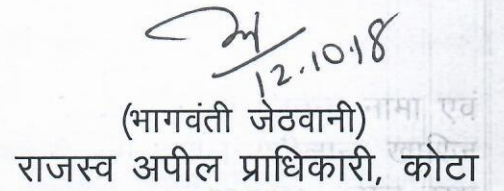 12.10.18
(भागवंती जेठवानी)
राजस्व अपील प्राधिकारी, कोटा